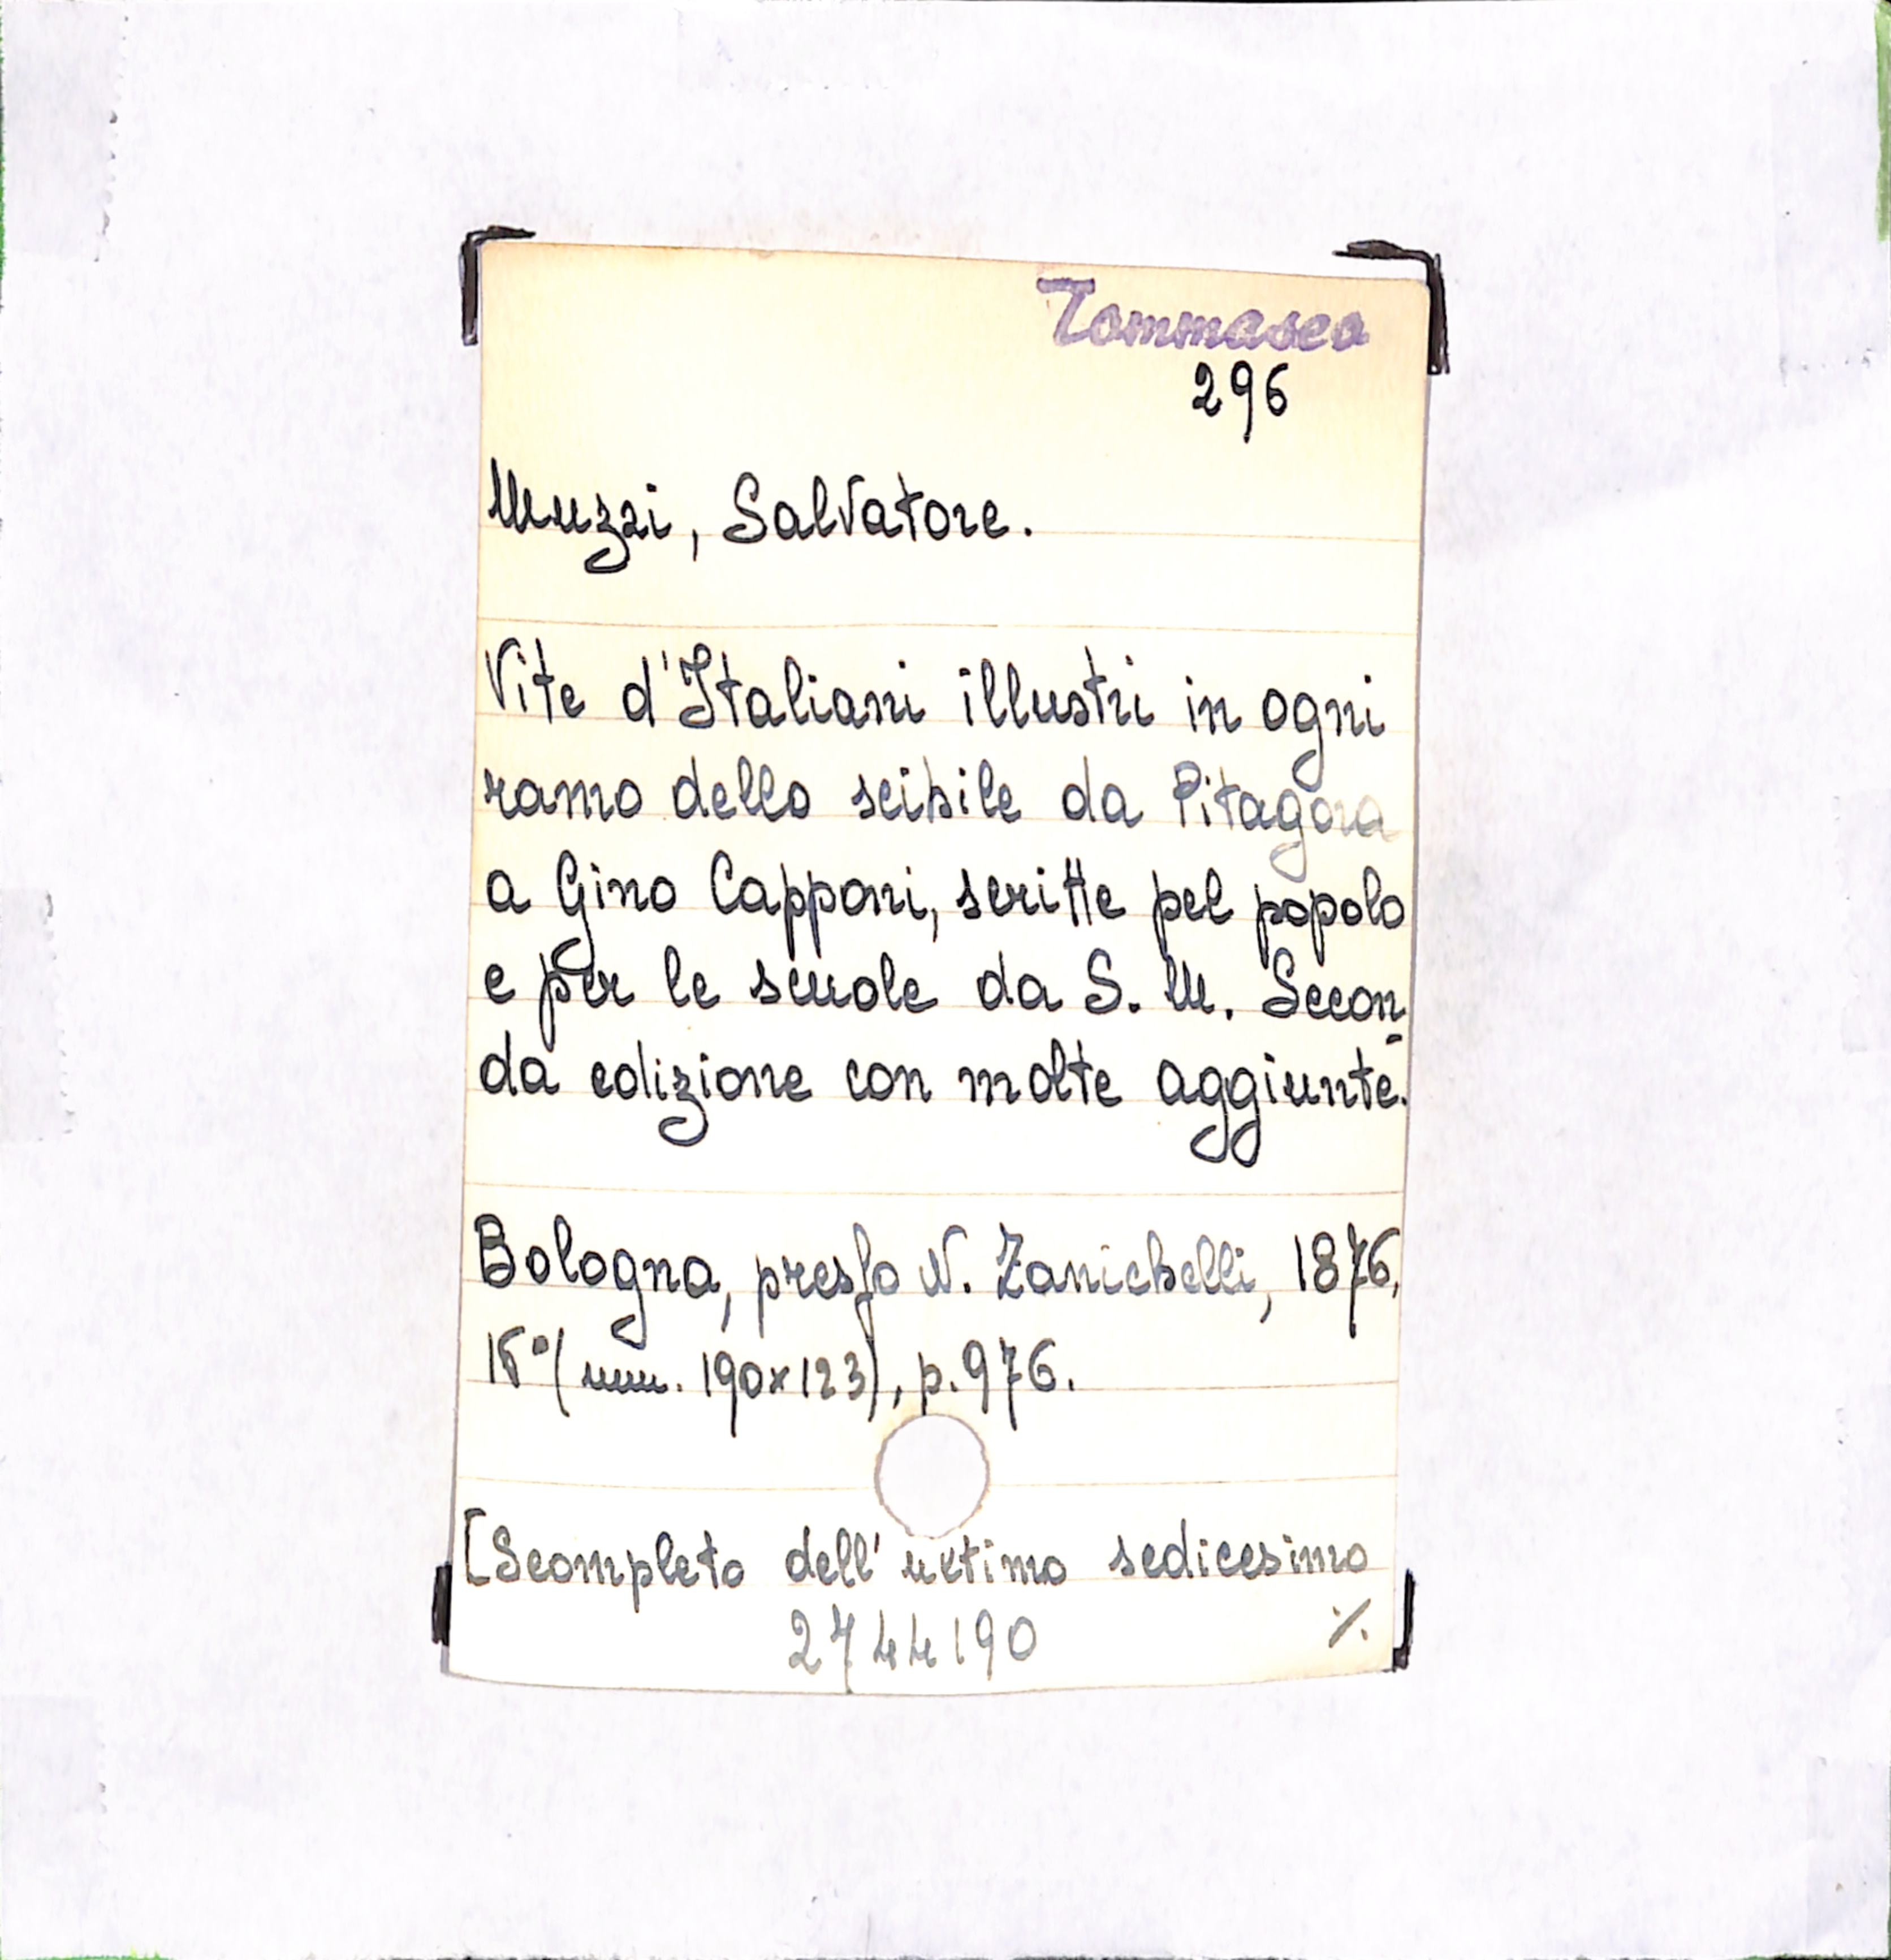 Tommaseo
296
Muzzi, Salvatore.
Vite d'Italiani illustri in ogni
ramo dello scibile da Pitagora
a Gino Capponi, scritte pel popolo
e per le scuole da S. M. Secon-
da edizione con molte aggiunte.
Bologna, presso N. Zanichelli, 1876,
16°(mm. 190x123), p. 976.
[Scompleto dell'ultimo sedicesimo
2744190 ·/.